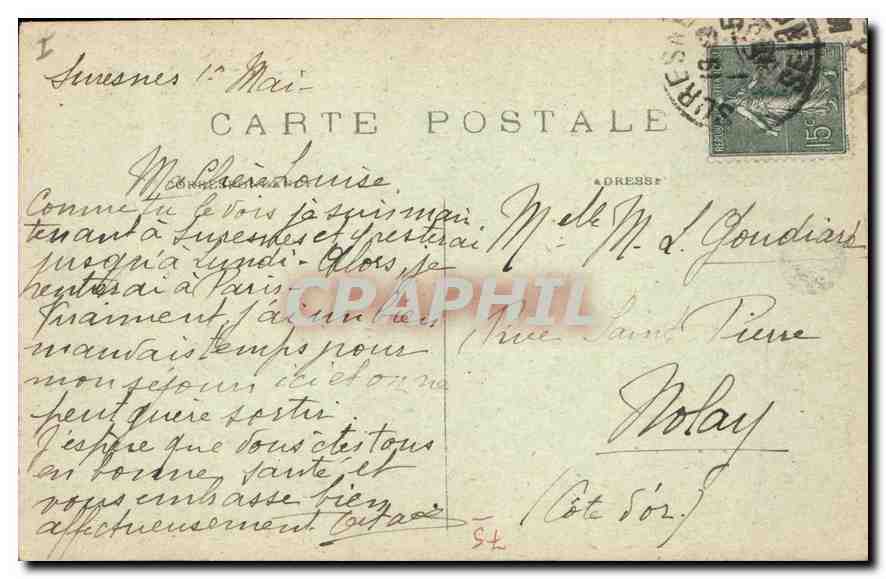 I
Suresnes 1er Mai -
CARTE POSTALE
CORRESPONDANCE
ADRESSE
Ma Chère Louise
Comme tu le vois je suis main
tenant à Suresnes et y resterai
jusqu'à Lundi - Alors, je
rentrerai à Paris -
Vraiment, j'ai un bien
mauvais temps pour
mon séjour ici et on ne
peut guère sortir.
J'espère que vous êtes tous
en bonne santé et
vous embrasse bien
affectueusement
Melle M. L. Goudiard
Rue Saint Pierre
Nolay
(Côte d'or.)
CRAPHIL
75
SURESNES
SEINE
15c